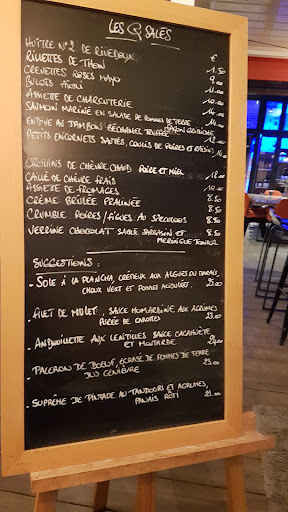 LES SALÉS
€
HUÎTRE N°2 DE RIVEDOUX 1.50
RILLETTES DE THON 9.00
CREVETTES ROSES MAYO
BULOTS AÏOLI 11.00
ASSIETTE DE CHARCUTERIE 10.00
SAUMON MARINÉ EN SALADE DE POMMES DE TERRE
ENDIVE AU JAMBON BÉCHAMEL TRUFFÉE
PETITS ENCORNETS SAUTÉS, COULIS DE POIVRES ET RAISIN
CROTTINS DE CHÈVRE CHAUD POIRE ET MIEL 12.00
CAILLÉ DE CHÈVRE FRAIS
ASSIETTE DE FROMAGES 10.00
CRÈME BRÛLÉE PRALINÉE 8.50
CRUMBLE POIRES/FIGUES AU SPECULOOS 8.50
VERRINE CHOCOLAT SABLÉ SARRASIN ET 8.50
MERINGUE TONKA
SUGGESTIONS :
- SOLE À LA PLANCHA, CRÉMEUX AUX ALGUES DU MARAIS,
CHOUX VERT ET POMMES 25.00
- FILET DE MULET, SAUCE HOMARDINE AUX AGRUMES
PURÉE DE CAROTTES 23.00
- ANDOUILLETTE AUX LENTILLES SAUCE CACAHUÈTE
ET MOUTARDE. 24.00
- PALERON DE BOEUF, ECRASÉ DE POMMES DE TERRE
JUS GENIÈVRE 23.00
- SUPRÊME DE PINTADE AU TANDOORI ET AGRUMES,
PANAIS RÔTI 21.00